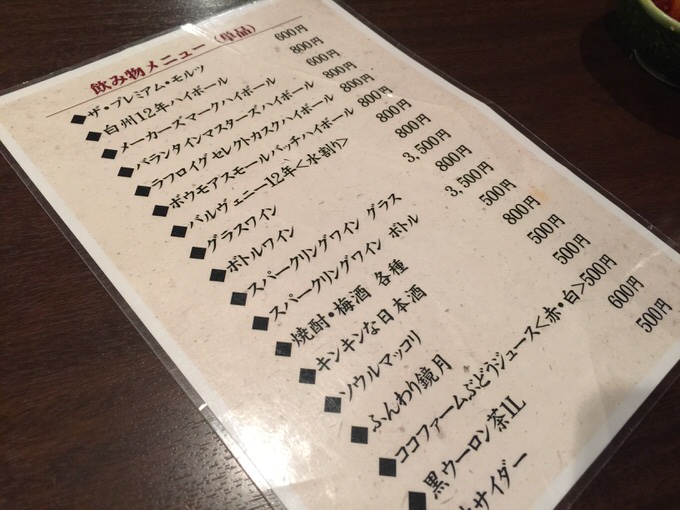 飲み物メニュー (単品)
◆ザ・プレミアム・モルツ 600円
◆白州12年ハイボール 800円
◆メーカーズマークハイボール 600円
◆バランタインマスターズハイボール 600円
◆ラフロイグセレクトカスクハイボール 800円
◆ボウモアスモールバッチハイボール 800円
◆バルヴェニー12年<水割り> 800円
◆グラスワイン 800円
◆ボトルワイン 3,500円
◆スパークリングワイン グラス 800円
◆スパークリングワイン ボトル 3,500円
◆焼酎・梅酒 各種 500円
◆キンキンな日本酒 800円
◆ソウルマッコリ 500円
◆ふんわり鏡月 500円
◆ココファームぶどうジュース<赤・白>500円
◆黒ウーロン茶1L 600円
◆サイダー 500円